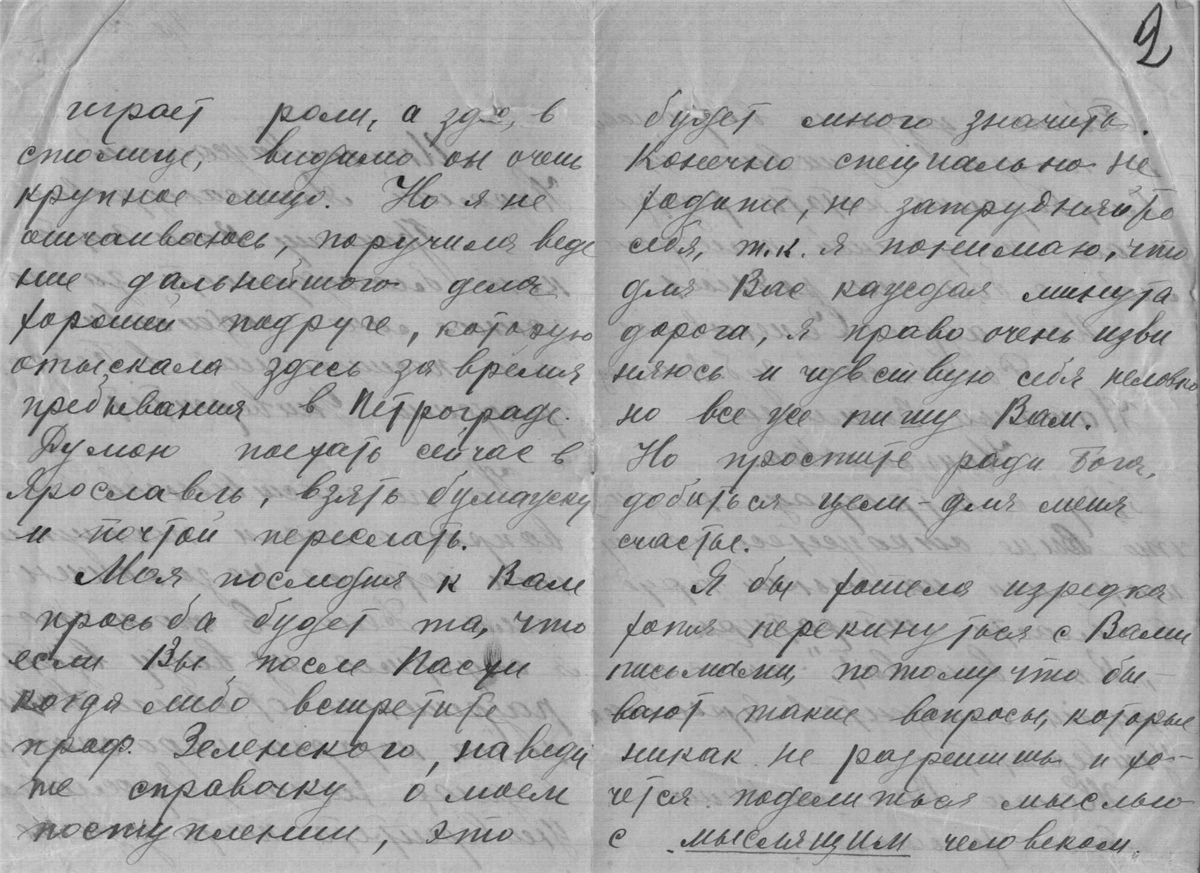 играет роли, а здесь, в
столице, видимо он очень
крупное лицо. Но я не
отчаиваюсь, поручила веде
ние дальнейшого дела
хорошей подруге, которую
отыскала здесь за время
пребывания в Петрограде.
Думаю поехать сейчас в
Ярославль, взять бумажку
и почтой переслать.
Моя последняя к Вам
просьба будет та, что
если Вы после Пасхи
когда либо встретите
проф. Зеленского, наведи
те справочку о моем
поступлении, это
2
будет много значить.
Конечно специально не
ходите, не затрудняйте
себя, т.к. я понимаю, что
для Вас каждая минута
дорога, я право очень изви
няюсь и чувствую себя неловко
но все же пишу Вам.
Но простите ради Бога,
добиться цели - для меня
счастье.
Я бы хотела изредка
хотя перекинуться с Вами
письмами, потому что бы-
вают такие вопросы, которые
никак не разрешишь и хо-
чется поделиться мыслью
с мыслящим человеком.